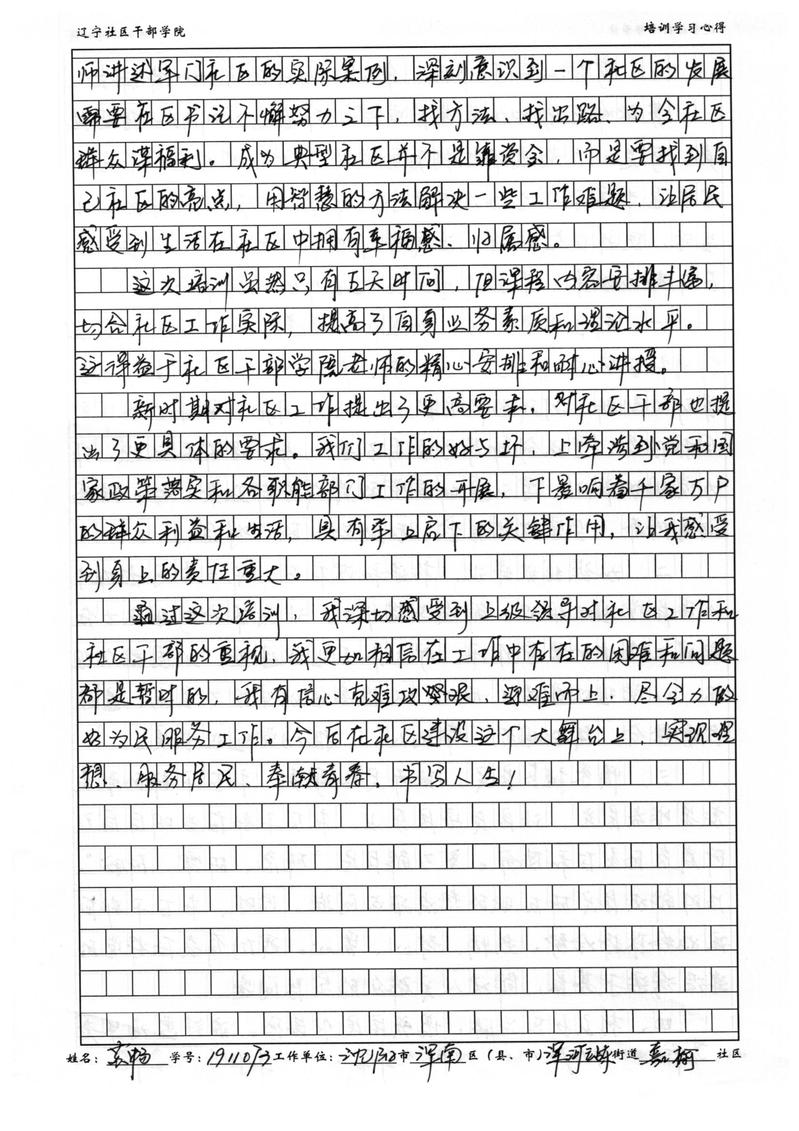 辽宁社区干部学院 培训学习心得
师讲述军门社区的实际案例，深刻意识到一个社区的发展
需要在区书记不懈努力之下，找方法、找出路、为全社区
群众谋福利。成为典型社区并不是靠资金，而是要找到自
己社区的亮点，用智慧的方法解决一些工作难题，让居民
感受到生活在社区中拥有幸福感、归属感。
这次培训虽然只有五天时间，但课程内容安排丰富，
切合社区工作实际，提高了自身业务素质和理论水平。
这得益于社区干部学院老师的精心安排和耐心讲授。
新时期对社区工作提出了更高要求，对社区干部也提
出了更具体的要求。我们工作的好与坏，上牵涉到党和国
家政策落实和各职能部门工作的开展，下影响着千家万户
的群众利益和生活，具有承上启下的关键作用，让我感受
到身上的责任重大。
通过这次培训，我深切感受到上级领导对社区工作和
社区干部的重视，我更加相信在工作中存在的困难和问题
都是暂时的，我有信心克难攻坚，迎难而上，尽全力的
好为民服务工作。今后在社区建设这个大舞台上，实现理
想、服务居民、奉献青春，书写人生！
姓名： 学号：1911073 工作单位：沈阳市 浑南 区（县、市）浑河站东 街道 嘉榆 社区